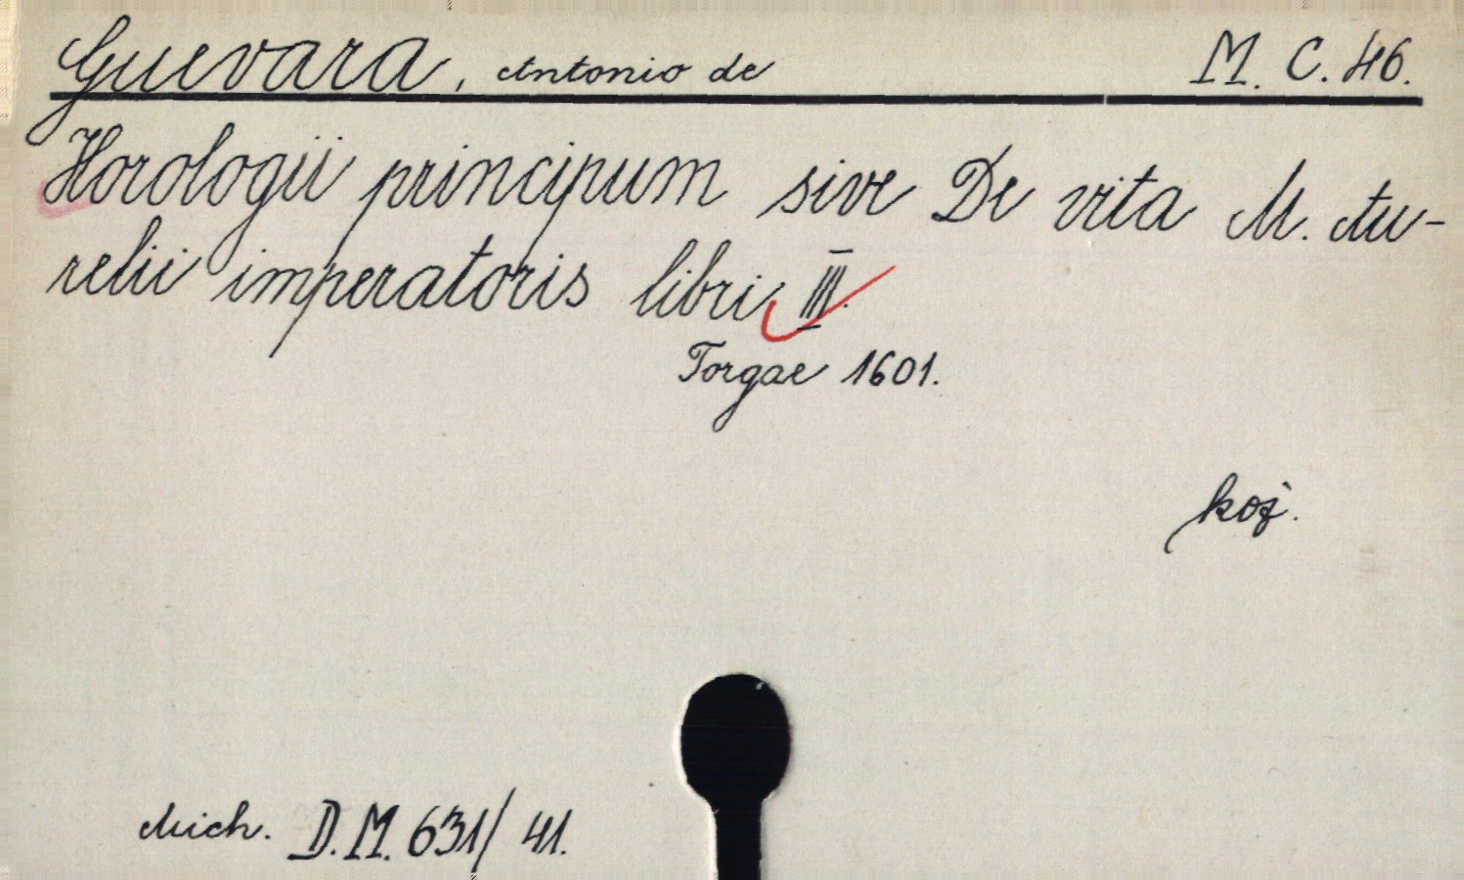 Guevara, Antonio de M. C. 46.
Horologii principum sive De vita M. Au-
relii imperatoris libri III.
Torgae 1601.
kož.
Mich. D.M. 631/41.